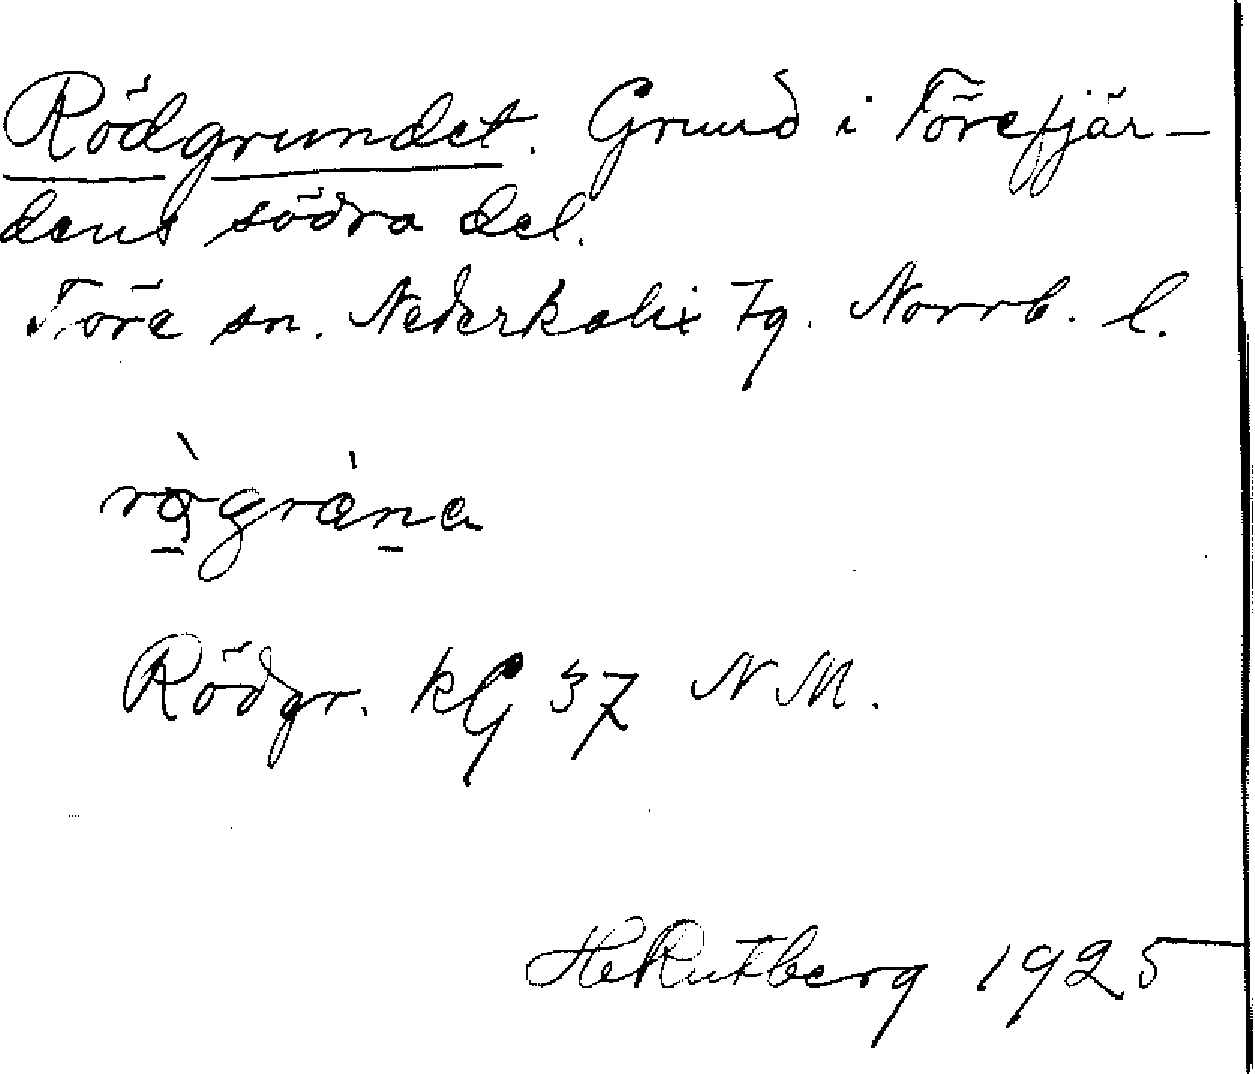 Rödgrundet. Grund i Törefjär-
dens södra del.
Töre sn. Nederkalix tg. Norrb. l.
Rödgr. kG 37 N M.
Hj Rutberg 1925